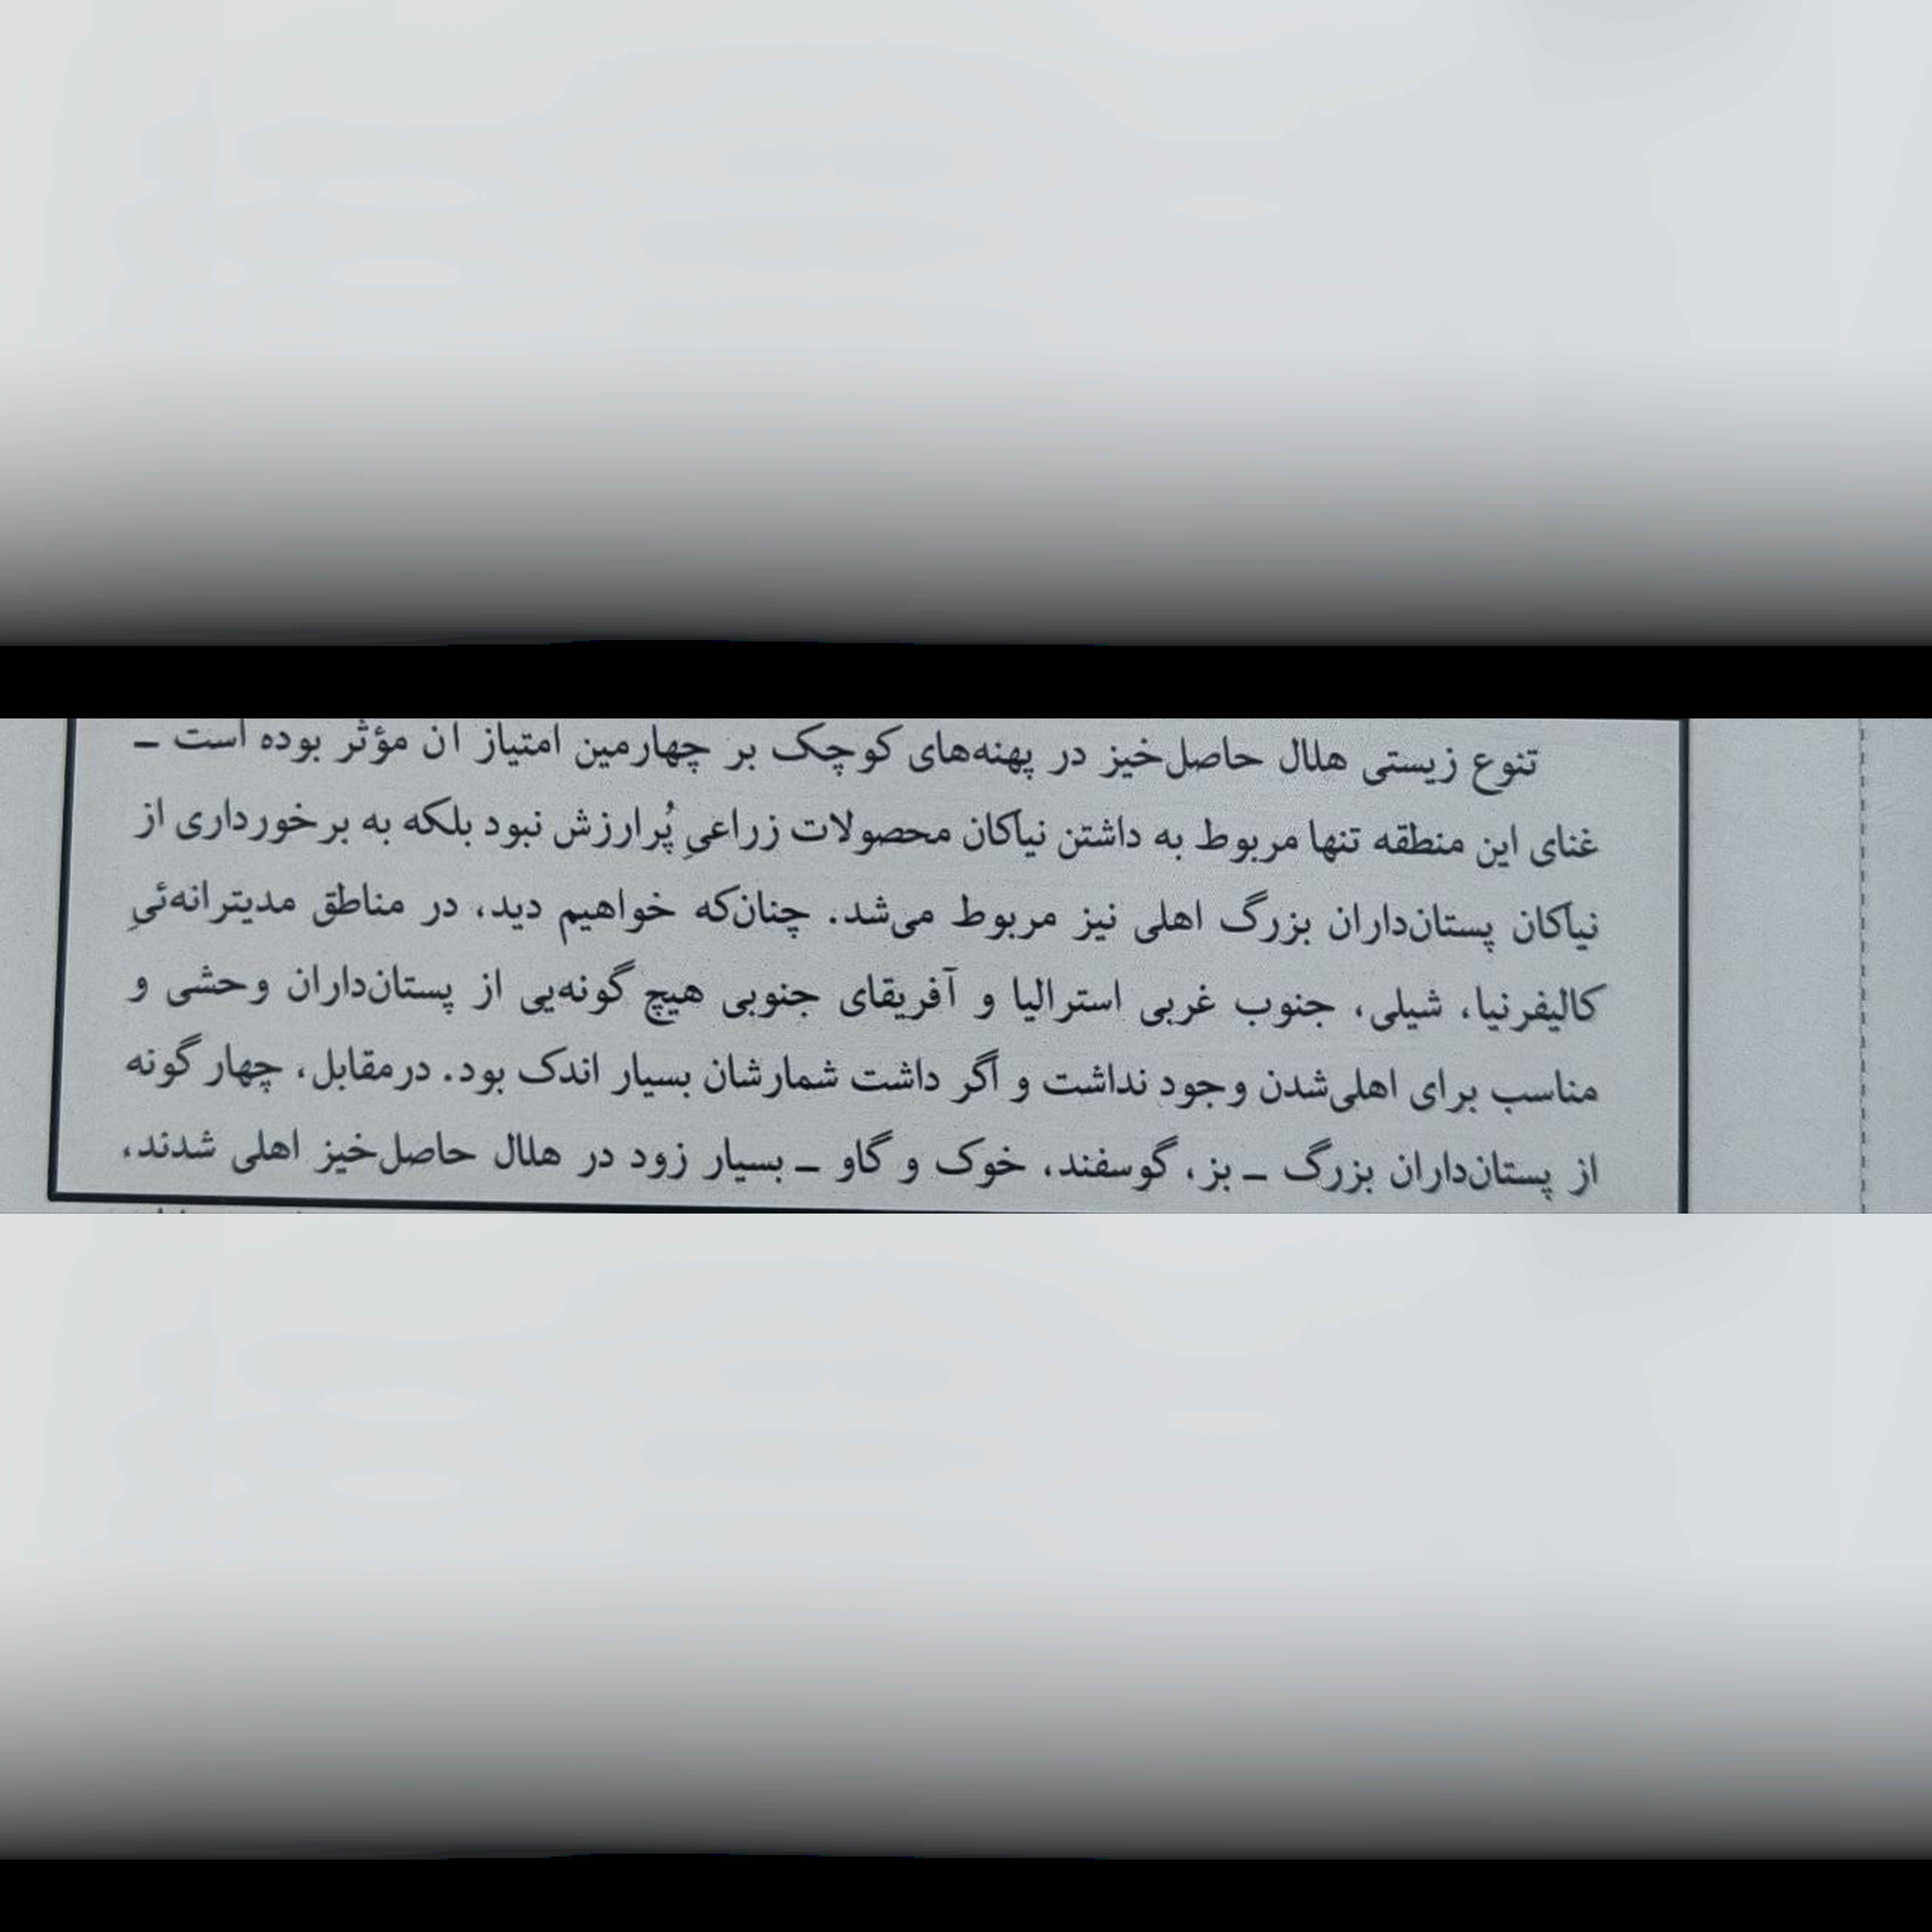 تنوع زیستی هلال حاصل‌خیز در پهنه‌های کوچک بر چهارمین امتیاز آن مؤثر بوده است ـ
غنای این منطقه تنها مربوط به داشتن نیاکان محصولات زراعیِ پُرارزش نبود بلکه به برخورداری از
نیاکان پستان‌داران بزرگ اهلی نیز مربوط می‌شد. چنان‌که خواهیم دید، در مناطق مدیترانه‌ئیِ
کالیفرنیا، شیلی، جنوب غربی استرالیا و آفریقای جنوبی هیچ گونه‌یی از پستان‌داران وحشی و
مناسب برای اهلی‌شدن وجود نداشت و اگر داشت شمارشان بسیار اندک بود. درمقابل، چهار گونه
از پستان‌داران بزرگ ـ بز، گوسفند، خوک و گاو ـ بسیار زود در هلال حاصل‌خیز اهلی شدند،